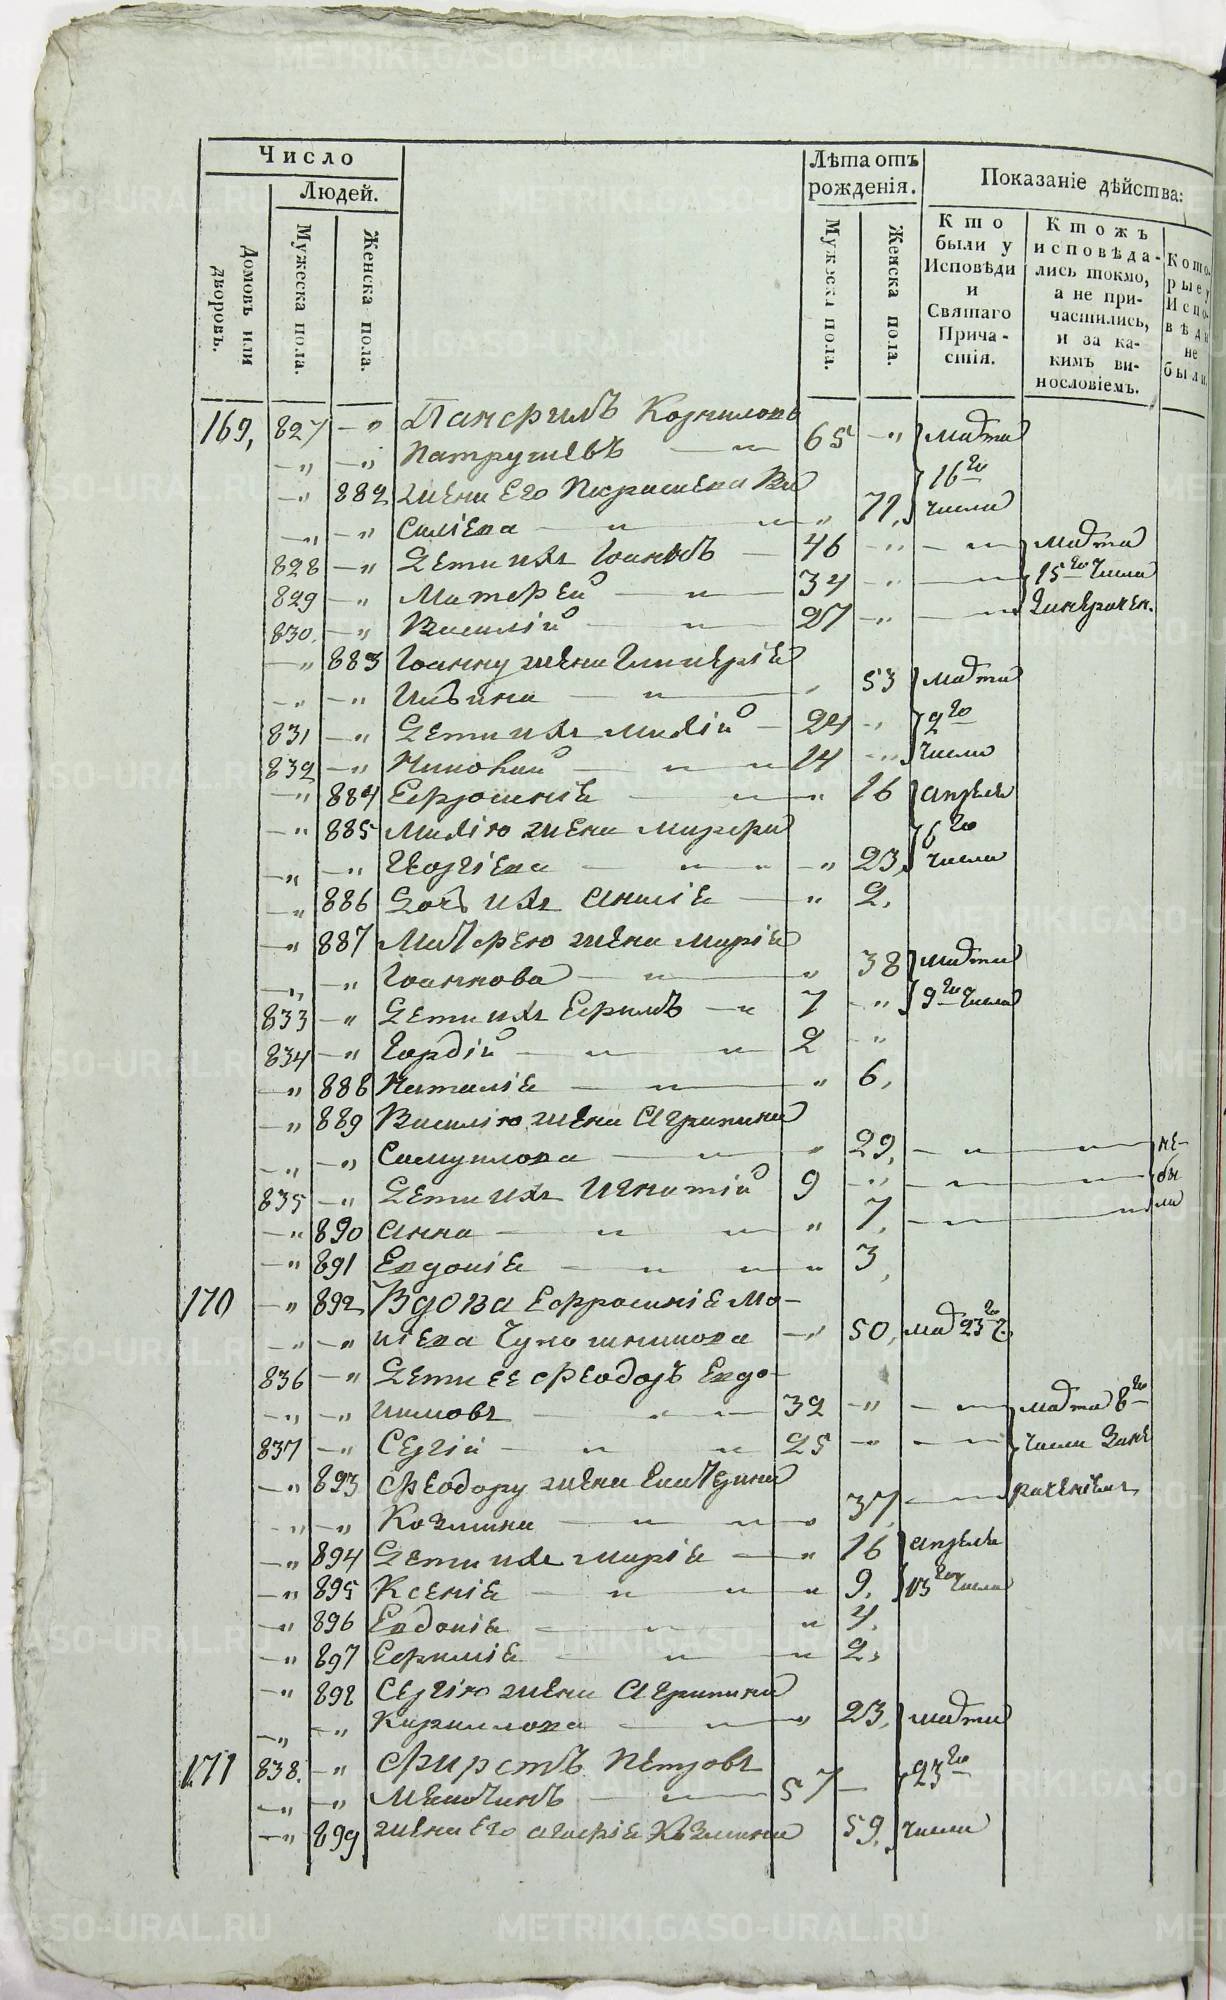 Число
Людей.
Домовъ или дворовъ.
Мужеска пола.
Женска пола.
Лѣта отъ рожденія.
Мужеска пола.
Женска пола.
Показаніе дѣйства:
Кто были у Исповѣди и Святаго Причастія.
Ктожъ исповѣдались токмо, а не причастились, и за какимъ винословіемъ.
Которые у Исповѣди не были.
169, 827 —„ Панфилъ Корниловъ
—„ —„ Патрушевъ — „ — 65 —„ марта
—„ 882 жена Его Парасκева Ва 16го
—„ —„ силіева — „ — „ „ 71, числа
828 —„ Дети ихъ Іоаннъ — 46 —„ — „ — марта
829 —„ Матфей — „ — 34 —„ — „ 15го числа
830. —„ Василій — „ — 27 —„ — „
—„ 883 Іоанну жена Гликерія
—„ —„ — „ — „ 53 марта
831 —„ Дети ихъ — 24 —„ 9го
832 —„ Николай — „ — „ 14 —„ числа
—„ 884 Ефросинія — „ — „ 16 апреля
—„ 885 жена Марфа 6го
—„ —„ Георгіева — „ — „ —„ 23, числа
—„ 886 Дочь ихъ — „ 2,
—„ 887 Матфею жена Марія
—„ —„ Іоаннова — „ — „ 38 марта
833 —„ Дети ихъ Ефимъ — „ 7 —„ 9го числа
834 —„ Гордій — „ — „ 2 —„
—„ 888 Наталія — „ — „ 6,
—„ 889 Василію жена Агрипина
—„ —„ Самуилова — „ — „ 29, — „ — „ — не-
835 —„ Дети ихъ Игнатій 9 —„ — „ — „ бы
—„ 890 Анна — „ — „ „ 7, — „ — „ ли
—„ 891 Евдокія — „ — „ „ 3,
170 —„ 892 Вдова Ефросинія Мо-
—„ —„ —„ 50, мар 23го ч.
836 —„ Дети ее Феодоръ Евдо-
—„ —„ кимовъ — „ — 32 —„ — „ — марта 8го
837 —„ Сергій — „ — „ 25 —„ — „ числа
—„ 893 Феодору жена Екатерина
—„ —„ Козмина — „ — „ „ 37, — „
—„ 894 Дети ихъ Марія — „ 16 апреля
—„ 895 Ксенія — „ — „ „ 9, 13го числа
—„ 896 Евдокія — „ — „ 4,
—„ 897 Ефимія — „ — „ 2,
—„ 898 Сергію жена Агрипина
—„ —„ Кирилова — „ — „ 23, марта
171 838. —„ Фирсъ Петровъ 23го
—„ —„ — „ — 57 —
—„ 899 жена Его Агафія Козмина 59, числа
METRIKI.GASO-URAL.RU